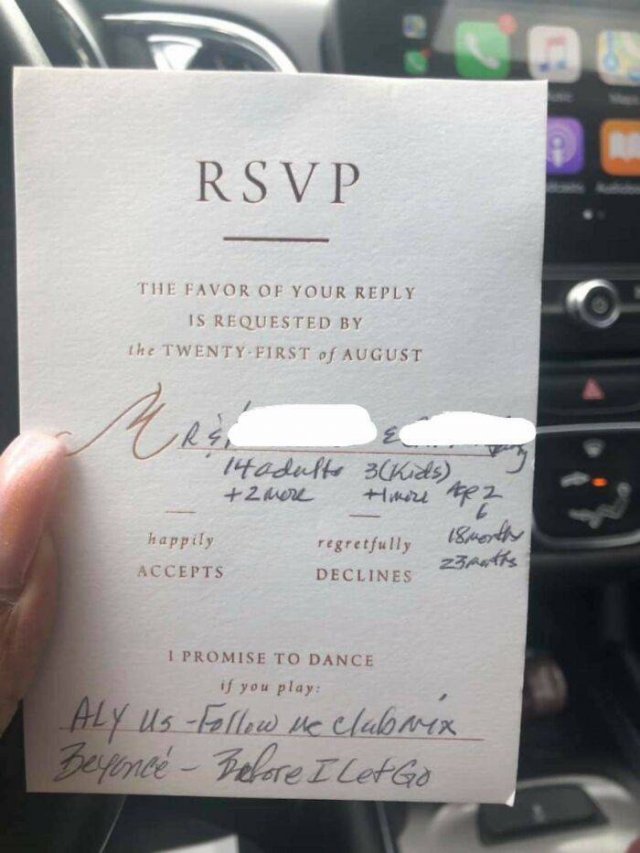 RSVP
THE FAVOR OF YOUR REPLY
IS REQUESTED BY
the TWENTY-FIRST of AUGUST
MR &
&
14 adults 3(Kids)
+2 more +1 more Age 2
6
happily regretfully 18 months
ACCEPTS DECLINES 23 months
I PROMISE TO DANCE
if you play:
ALY Us - Follow me club mix
Beyoncé - Before I Let Go